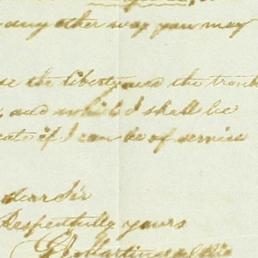 any other way you may
se the liberty and the troub
and which I shall be
cate if I can be of service
dear Sir
Respectfully yours